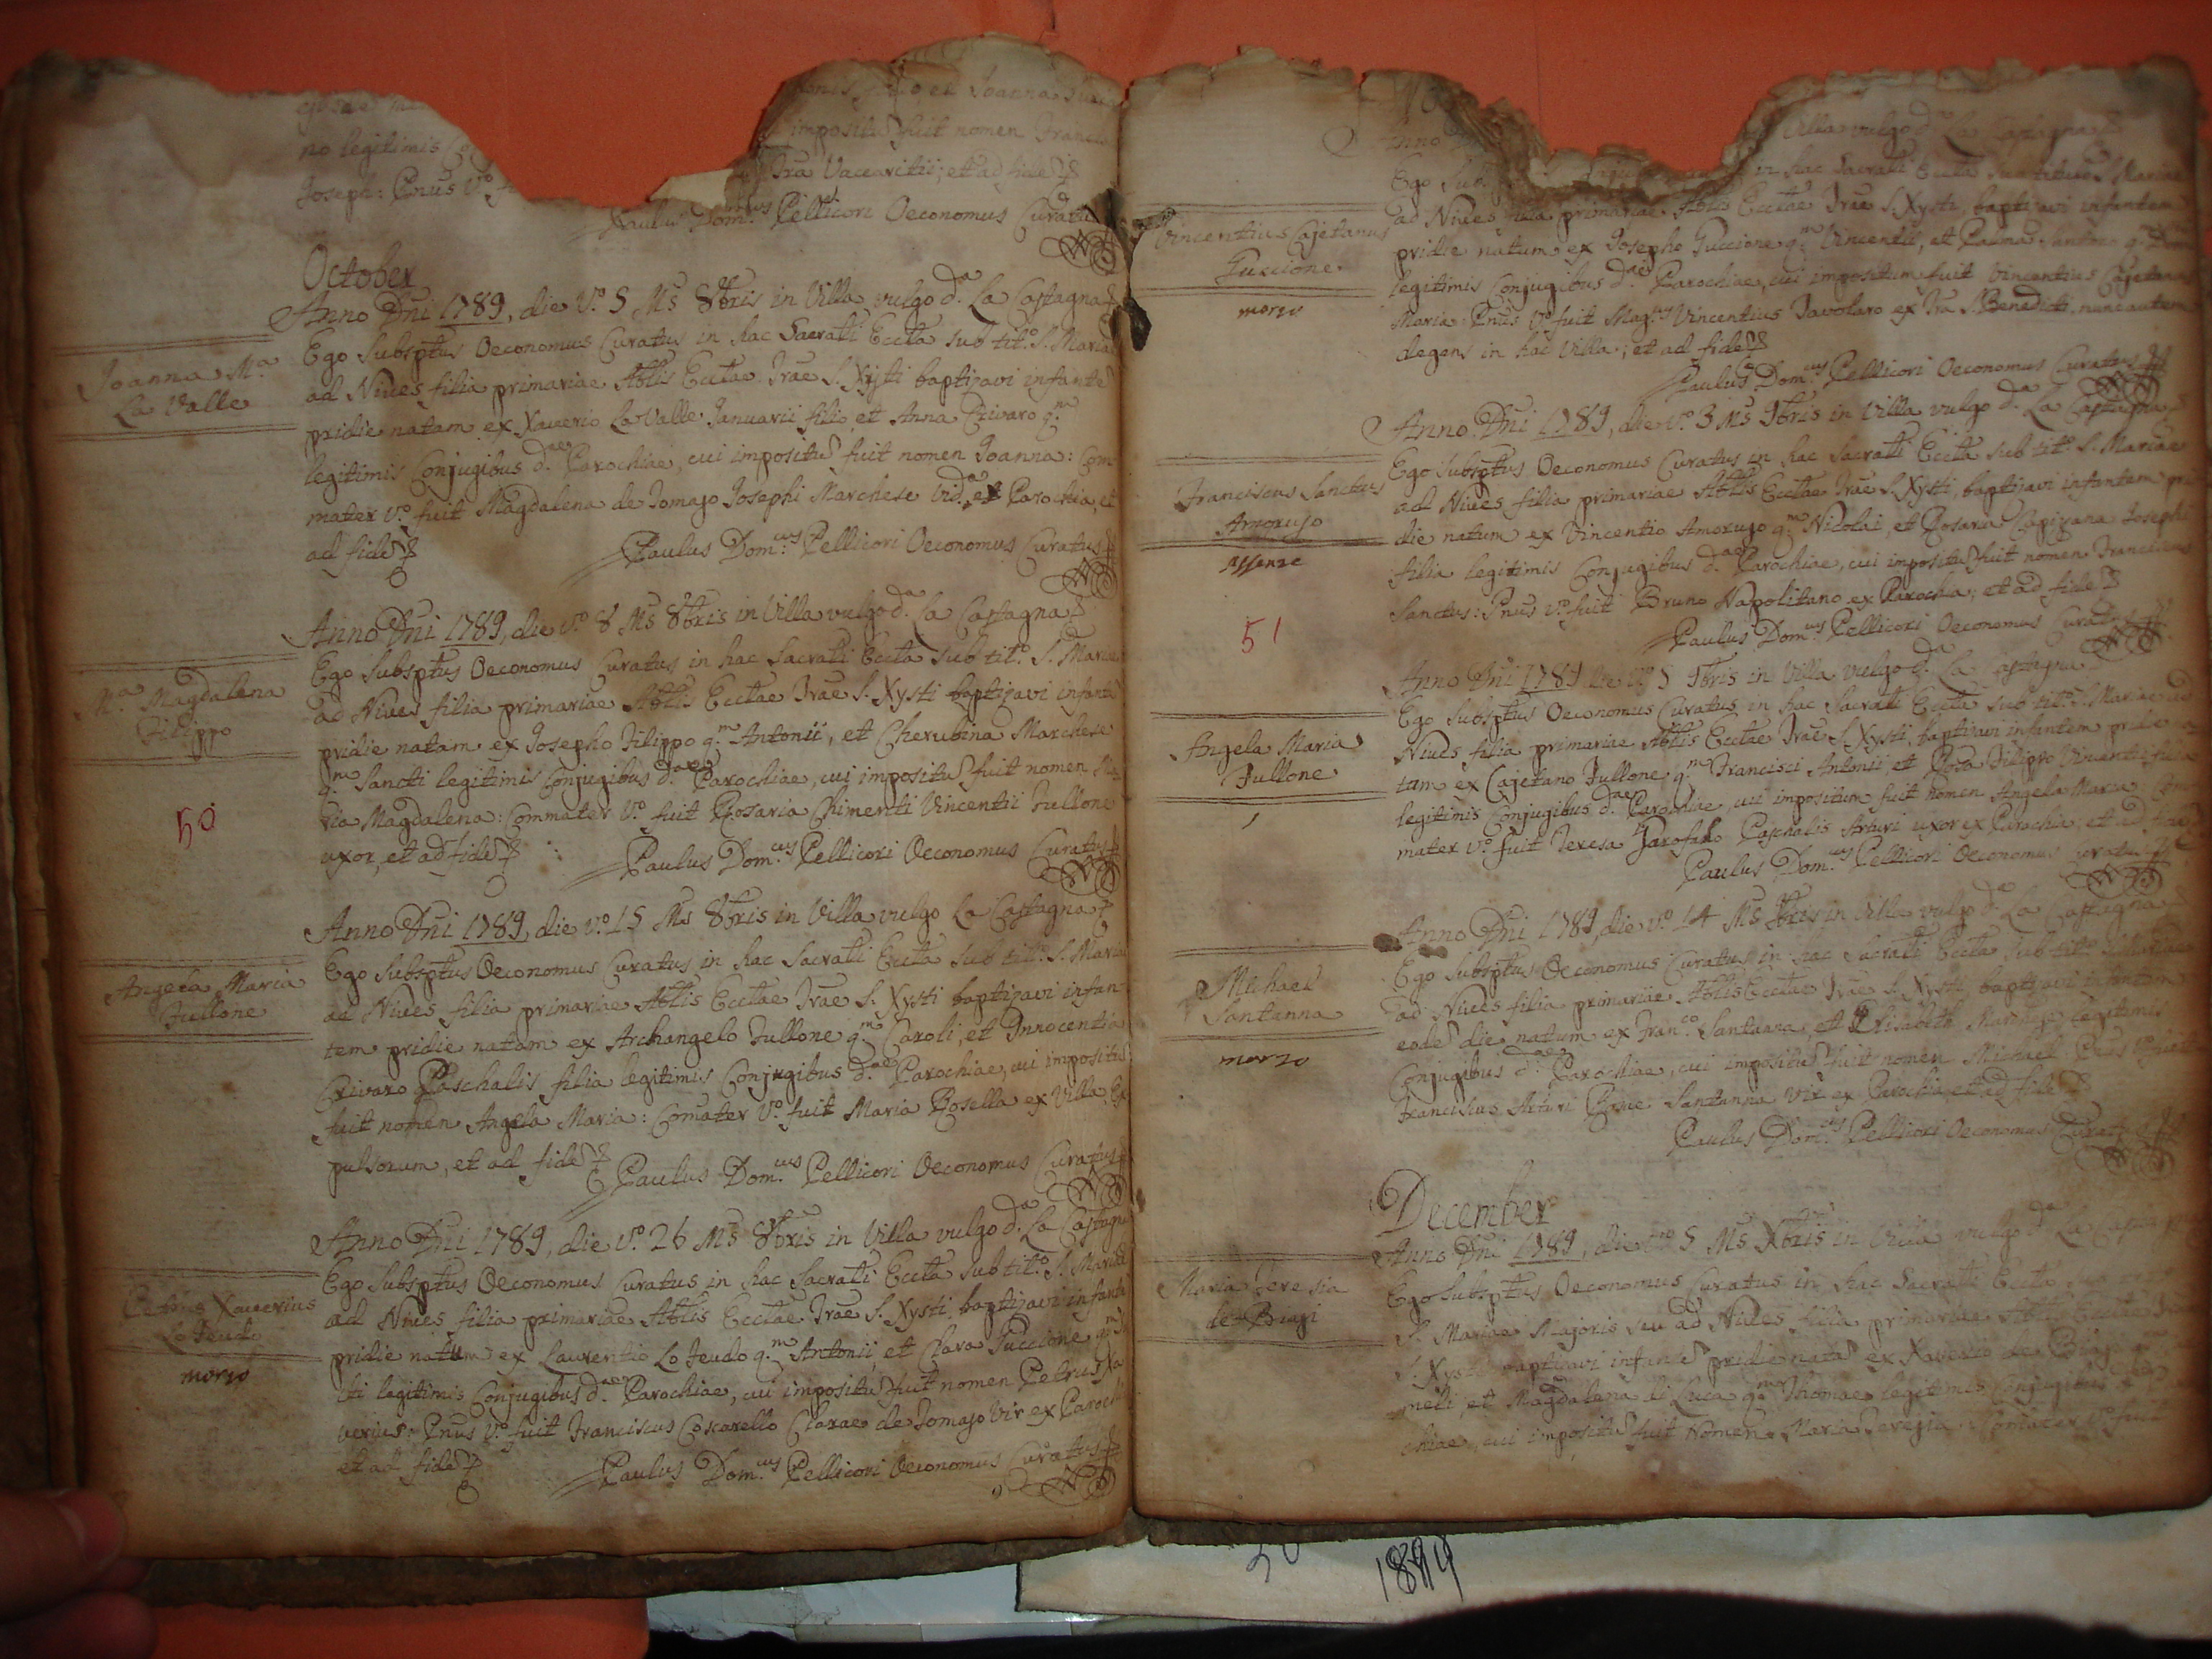 no legitimis
Joseph: Pnus Vº
et Joanna
impositũ fuit nomen
Trã Vaccaritii; et ad fidẽ
Paulus Dom.cus Pellicori Oeconomus Curatus
October
Joanna M.a
La Valle
Anno Dñi 1789, die Vº 5 Ms 8bris in Villa vulgo d.a La Castagna
Ego Subsptus Oeconomus Curatus in hac Sacrati Eccta sub tit.º S. Mariae
ad Nives filia primariae Abtis Ecctae Trae S. Xysti baptizavi infantẽ
pridie natam ex Xaverio La Valle Januarii filio et Anna Crivaro q.m
legitimis Conjugibus d.ae Parochiae, cui impositũ fuit nomen Joanna: Com
mater Vº fuit Magdalena de Tomaso Josephi Marchese vid.a ex Parochia, et
ad fidẽ
Paulus Dom.cus Pellicori Oeconomus Curatus
M.a Magdalena
Filippo
50
Anno Dñi 1789, die Vº 8 Ms 8bris in Villa vulgo d.a La Castagna
Ego Subsptus Oeconomus Curatus in hac Sacrati Eccta sub tit.º S. Mariae
ad Nives filia primariae Abtis Ecctae Trae S. Xysti baptizavi infantẽ
pridie natam ex Josepho Filippo q.m Antonii, et Cherubina Marchese
q.m Sancti legitimis Conjugibus d.ae Parochiae, cui impositũ fuit nomen Ma
ria Magdalena: Commater Vº fuit Rosaria Chimenti Vincentii Fullone
uxor, et ad fidẽ
Paulus Dom.cus Pellicori Oeconomus Curatus
Angela Maria
Fullone
Anno Dñi 1789 die Vº 15 Ms 8bris in Villa vulgo La Castagna
Ego Subsptus Oeconomus Curatus in hac Sacrati Eccta sub tit.º S. Mariae
ad Nives filia primariae Abtis Ecctae Trae S. Xysti baptizavi infan
tem pridie natam ex Archangelo Fullone q.m Caroli, et Innocentia
Crivaro Paschalis filia legitimis Conjugibus d.ae Parochiae, cui impositũ
fuit nomen Angela Maria: Comater Vº fuit Maria Rosella ex Villa Ex
pulsorum, et ad fidẽ
Paulus Dom.cus Pellicori Oeconomus Curatus
Petrus Xaverius
Lo Feudo
morto
Anno Dñi 1789, die Vº 26 Ms 8bris in Villa vulgo d.a La Castagna
Ego Subsptus Oeconomus Curatus in hac Sacrati Eccta sub tit.º S. Mariae
ad Nives filia primariae Abtis Ecctae Trae S. Xysti baptizavi infantẽ
pridie natum ex Laurentio Lo Feudo q.m Antonii, et Clara Guccione q.m
ti legitimis Conjugibus d.ae Parochiae, cui impositũ fuit nomen Petrus Xa
verius: Pnus Vº fuit Franciscus Coscarello Clarae de Tomaso Vir ex Paroch
et ad fidẽ
Paulus Dom.cus Pellicori Oeconomus Curatus
Vincentius Cajetanus
Guccione
morto
Anno
Villa vulgo d.a La Castagna
Ego Sub
in hac Sacrati Eccta sub titulo S. Mariae
ad Nives filia primariae Abtis Ecctae Trae S. Xysti, baptizavi infantem
pridie natum ex Josepho Guccione q.m Vincentii, et Palma Santoro q.m
legitimis Conjugibus d.ae Parochiae, cui impositum fuit Vincentius Cajetanus
Maria: Pnus Vº fuit Mag.cus Vincentius Tavolaro ex Tra S. Benedicti, nunc autem
degens in hac Villa; et ad fidẽ
Paulus Dom.cus Pellicori Oeconomus Curatus
Franciscus Sanctus
Amoruso
assente
51
Anno Dñi 1789, die Vº 3 Ms 9bris in Villa vulgo d.a La Castagna
Ego Subsptus Oeconomus Curatus in hac Sacrati Eccta sub tit.º S. Mariae
ad Nives filia primariae Abtis Ecctae Trae S. Xysti, baptizavi infantem pri
die natum ex Vincentio Amoruso q.m Nicolai, et Rosaria Capizana Josephi
filia legitimis Conjugibus d.ae Parochiae, cui impositũ fuit nomen Franciscus
Sanctus: Pnus Vº fuit Bruno Napolitano ex Parochia; et ad fidẽ
Paulus Dom.cus Pellicori Oeconomus Curatus
Angela Maria
Fullone
Anno Dñi 1789 die Vº 5 9bris in Villa vulgo d.a La Castagna
Ego Subsptus Oeconomus Curatus in hac Sacrati Eccta sub tit.º S. Mariae ad
Nives filia primariae Abtis Ecctae Trae S. Xysti, baptizavi infantem pridie na
tam ex Cajetano Fullone q.m Francisci Antonii, et Rosa Filippo Vincentii filia
legitimis Conjugibus d.ae Parochiae, cui impositum fuit nomen Angela Maria: Com
mater Vº fuit Teresa Garofalo Paschalis Arturi uxor ex Parochia, et ad fidẽ
Paulus Dom.cus Pellicori Oeconomus Curatus
Michael
Santanna
morto
Anno Dñi 1789, die Vº 14 Ms 9bris in Villa vulgo d.a La Castagna
Ego Subsptus Oeconomus Curatus in hac Sacrati Eccta sub tit.º S. Mariae
ad Nives filia primariae Abtis Ecctae Trae S. Xysti baptizavi infantem
eodẽ die natum ex Fran.co Santanna, et Elisabeth Marchese legitimis
Conjugibus d.ae Parochiae, cui impositũ fuit nomen Michael: Pnus Vº fuit
Franciscus Arturi Rosae Santanna Vir ex Parochia, et ad fidẽ
Paulus Dom.cus Pellicori Oeconomus Curatus
December
Maria Teresia
de Biasi
Anno Dñi 1789, die Vº 5 Ms Xbris in Villa vulgo d.a La Castagna
Ego Subsptus Oeconomus Curatus in hac Sacrati Eccta
S. Mariae Majoris seu ad Nives filia primariae Abtis Ecctae
S. Xysti baptizavi infantẽ pridie natã ex Xaverio de Biasi q.m
meli, et Magdalena di Luca q.m Thomae legitimis Conjugibus
chiae, cui impositũ fuit nomen Maria Teresia: Comater Vº fuit